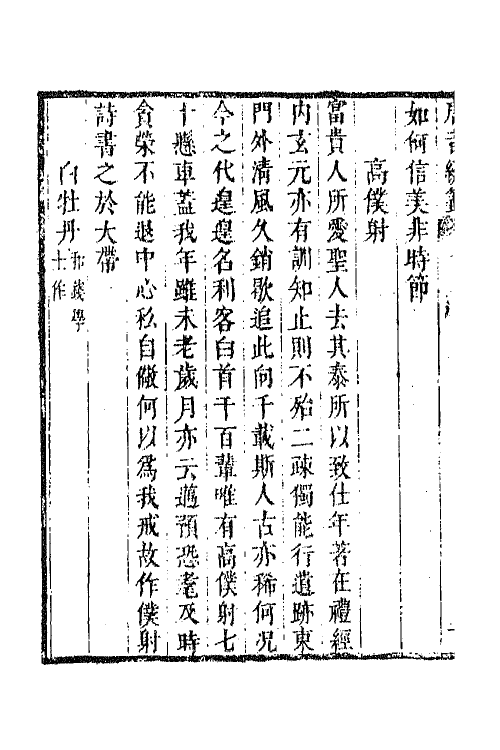 唐音統籤
如何信美非時節
高僕射
富貴人所愛聖人去其泰所以致仕年著在禮經
内玄元亦有訓知止則不殆二疎獨能行遺跡東
門外清風久銷歇追此向千載斯人古亦稀何況
今之代遑遑名利客白首千百輩唯有高僕射七
十懸車蓋我年雖未老歲月亦云邁預恐耄及時
貪榮不能退中心私自儆何以爲我戒故作僕射
詩書之於大帶
白牡丹和錢學士作